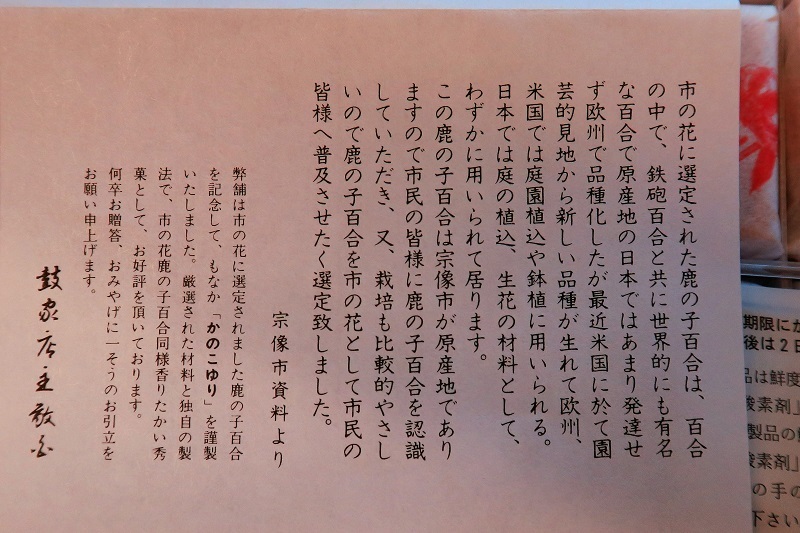 市の花に選定された鹿の子百合は、百合
の中で、鉄砲百合と共に世界的にも有名
な百合で原産地の日本ではあまり発達せ
ず欧州で品種化したが最近米国に於て園
芸的見地から新しい品種が生れて欧州、
米国では庭園植込や鉢植に用いられる。
日本では庭の植込、生花の材料として、
わずかに用いられて居ります。
この鹿の子百合は宗像市が原産地であり
ますので市民の皆様に鹿の子百合を認識
していただき、又、栽培も比較的やさし
いので鹿の子百合を市の花として市民の
皆様へ普及させたく選定致しました。
宗像市資料より
弊舗は市の花に選定されました鹿の子百合
を記念して、もなか「かのこゆり」を謹製
いたしました。厳選された材料と独自の製
法で、市の花鹿の子百合同様香りたかい秀
菓として、お好評を頂いております。
何卒お贈答、おみやげに一そうのお引立を
お願い申上げます。
店主敬白
期限にか
後は2日
品は鮮度
酸素剤」
製品の
酸素剤」
の手の
下さい